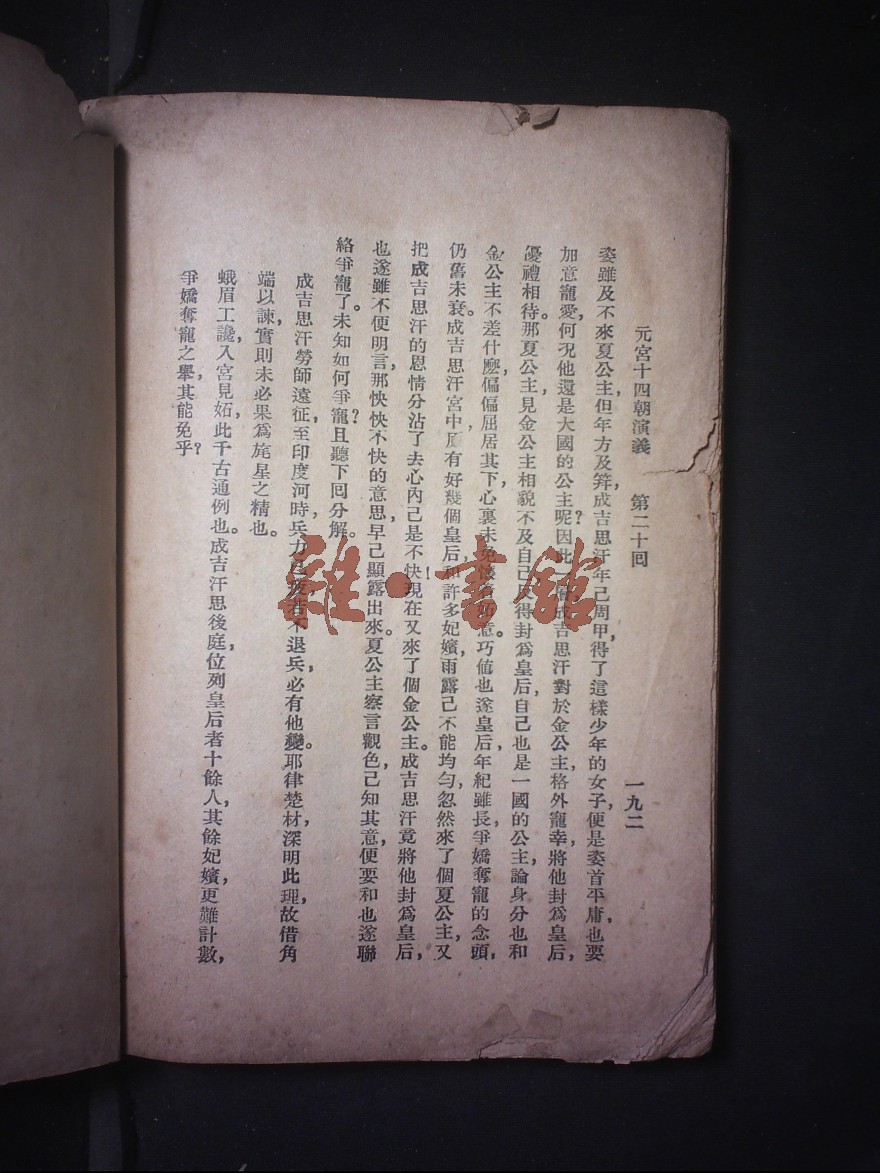 元宮十四朝演義　第二十回　一九二
姿雖及不來夏公主，但年方及笄，成吉思汗年已周甲，得了這樣少年的女子，便是姿首平庸，也要
加意寵愛，何况他還是大國的公主呢？因此成吉思汗對於金公主，格外寵幸，將他封爲皇后，
優禮相待。那夏公主見金公主相貌不及自己，得封爲皇后，自己也是一國的公主，論身分也和
金公主不差什麽，偏偏屈居其下，心裏未免意。巧值也遂皇后，年紀雖長，爭嬌奪寵的念頭，
仍舊未衰。成吉思汗宮中，原有好幾個皇后，和許多妃嬪，雨露已不能均勻，忽然來了個夏公主，又
把成吉思汗的恩情分沾了去，心內已是不快！現在又來了個金公主。成吉思汗竟將他封爲皇后，
也遂雖不便明言，那怏怏不快的意思，早已顯露出來。夏公主察言觀色，已知其意，便要和也遂聯
絡爭寵了。未知如何爭寵？且聽下囘分解。
成吉思汗勞師遠征，至印度河時，兵力已疲，若不退兵，必有他變。耶律楚材深明此理，故借角
端以諫，實則未必果爲旄星之精也。
蛾眉工讒，入宮見妬，此千古通例也。成吉汗思後庭，位列皇后者十餘人，其餘妃嬪，更難計數，
爭嬌奪寵之舉，其能免乎？
雜·書館